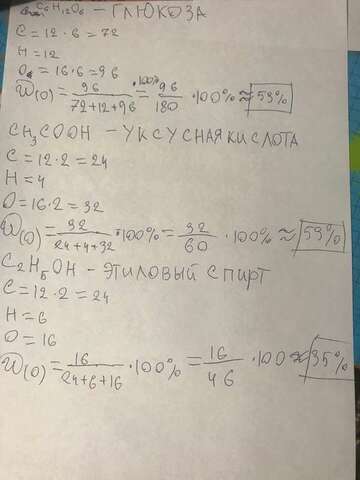 C₆H₁₂O₆ - ГЛЮКОЗА
C = 12 · 6 = 72
H = 12
O₆ = 16 · 6 = 96
W(O) = 96 / 72+12+96 · 100% = 96 / 180 · 100% ≈ 53%
CH₃COOH - УКСУСНАЯ КИСЛОТА
C = 12 · 2 = 24
H = 4
O = 16 · 2 = 32
W(O) = 32 / 24+4+32 · 100% = 32 / 60 · 100% ≈ 53%
C₂H₅OH - ЭТИЛОВЫЙ СПИРТ
C = 12 · 2 = 24
H = 6
O = 16
W(O) = 16 / 24+6+16 · 100% = 16 / 46 · 100 ≈ 35%